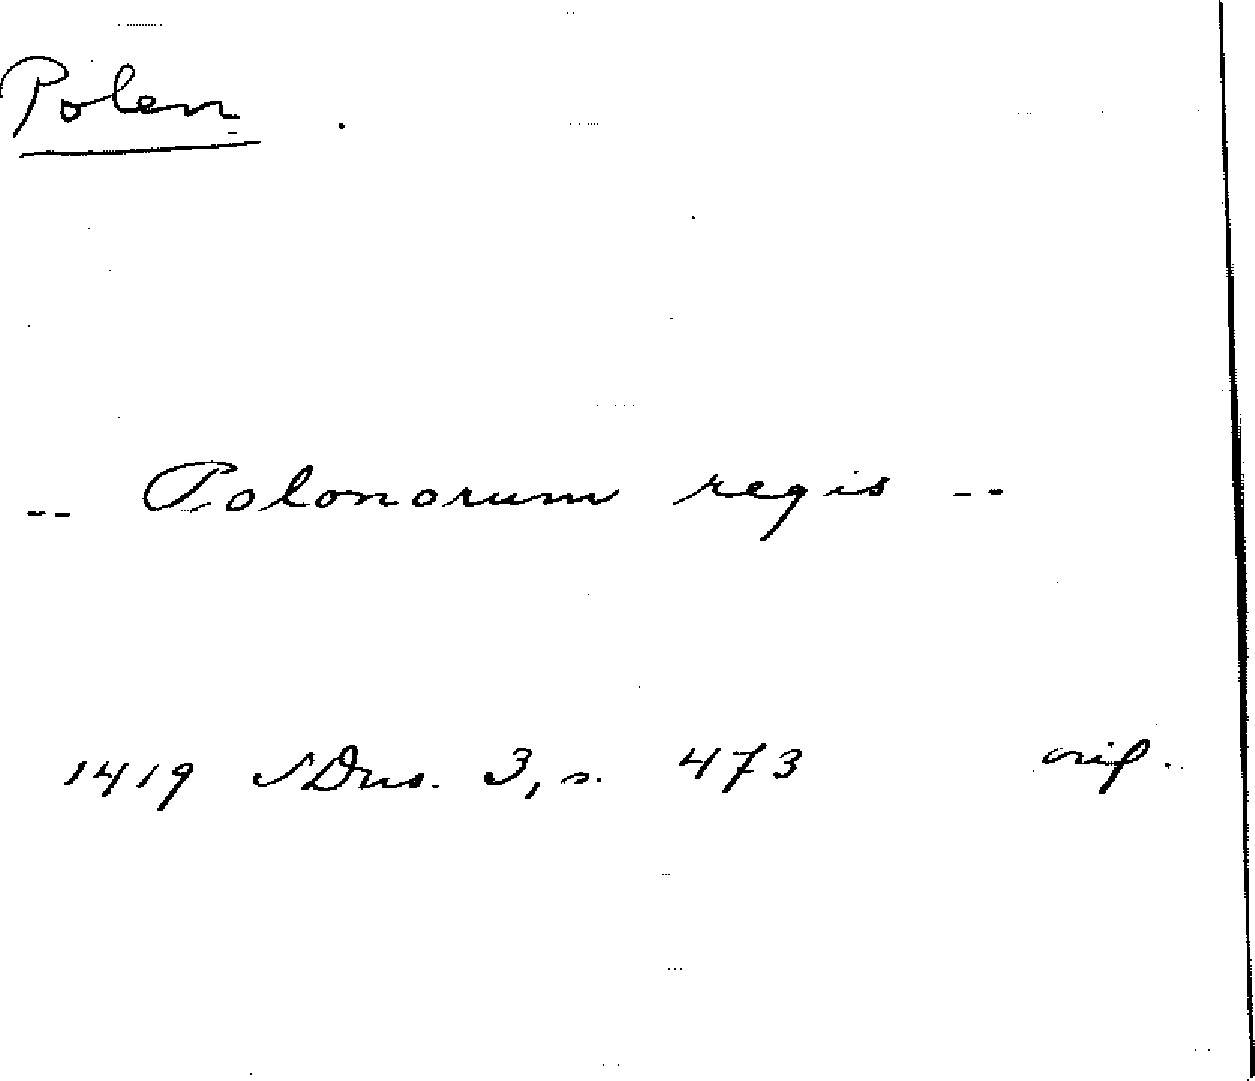 Polen
-- Polonorum regis --
1419 SDns. 3, s. 473 orig.